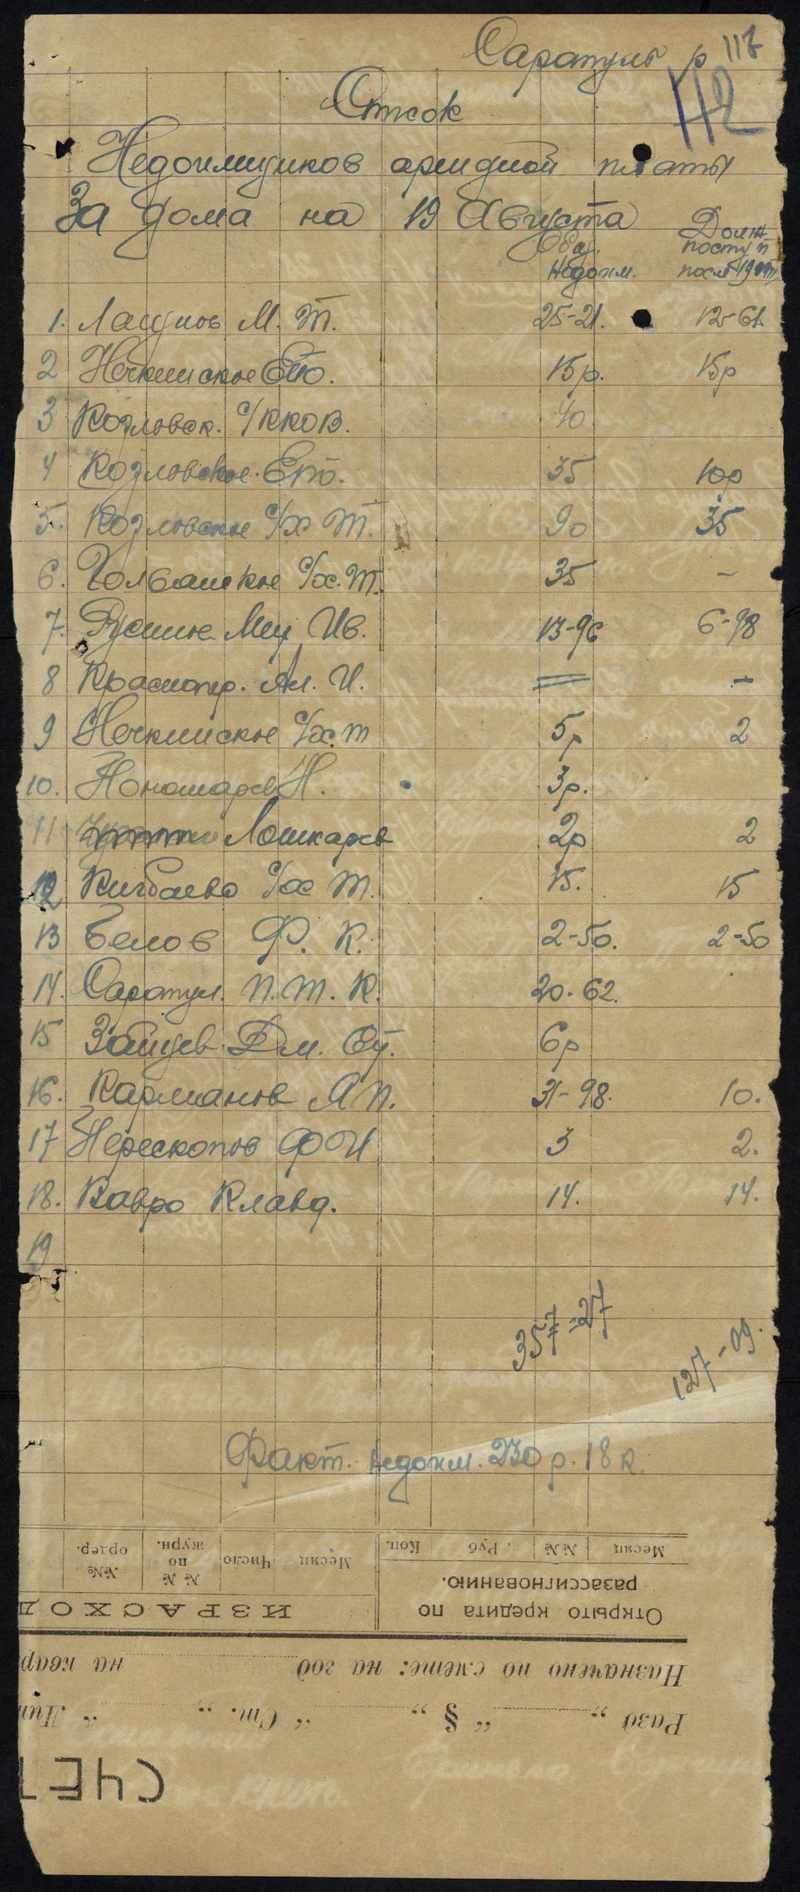 Сарапуль р 117
112
Список
Недоимщиков арендной платы
За дома на 19 Августа
Общ. недоим. Долж. поступ. после 19/VIII
1. Лагунов М. Т. 25-21. 12-61
2 Нечкинское Епо. 15р. 15р
3 Козловск. с/ККОВ. 40
4 Козловское Епо. 35 10р
5. Козловское с/х Т. 90 35
6. Гольянское с/х. Т. 35 -
7. Русинов Ив. 13-96 6-98
8 Краснопер. Ал. И. = -
9 Нечкинское с/х. т 5р 2
10. Пономарев Н. 3р.
11 Лошкарев 2р 2
12 Кигбаево с/х Т. 15. 15
13 Белов Ф. К. 2-50. 2-50
14. Сарапул. П. Т. К. 20-62.
15 Зайцев Дм. 6р
16. Карманов А П. 31-98. 10.
17 Перескопов Ф И 3 2.
18. Вавро Клавд. 14. 14.
19
357=27
127-09.
Факт. недоим. 230 р. 18 к.
СЧЕТ
Разд „ “ § „ “ Ст. „ “ Лит
Назначено по смете: на год на квар
Открыто кредита по разассигнованию.
ИЗРАСХОД
Месяц №№ Руб. Коп. Месяц Число №№ по журн. №№ ордер.